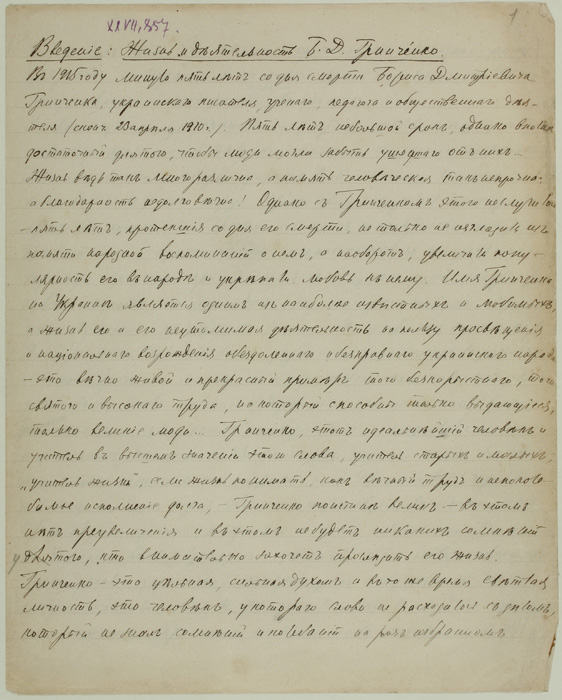 XXVII, 857.
1
Введеніе: Жизнь и дѣятельность Б. Д. Гринченко.
Въ 1915 году минуло пять лѣтъ со дня смерти Бориса Дмитріевича
Гринченка, украинскаго писателя, ученаго, педагога и общественнаго дѣя-
теля (сконч. 23 апрѣля 1910 г.). Пять лѣтъ небольшой срокъ, однако вполнѣ
достаточный для того, чтобы люди могли забыть ушедшаго отъ нихъ –
Жизнь вѣдь такъ многоразлична, а память человѣческая такъ непрочна,
а благодарность недолговѣчна! Однако съ Гринченкомъ этого не случилось
– пять лѣтъ, протекшія со дня его смерти, не только не изгладили изъ
памяти народной воспоминаній о немъ, а наоборотъ, увеличили попу-
лярность его въ народѣ и укрѣпили любовь къ нему. Имя Гринченко
на Украинѣ является однимъ изъ наиболѣе извѣстныхъ и любимыхъ,
а жизнь его и его неутомимая дѣятельность на пользу просвѣщенія
и національнаго возрожденія обездоленнаго и безправнаго украинскаго народа
– это вѣчно живой и прекрасный примѣръ того безкорыстнаго, того
святого и высокаго труда, на который способны только выдающіеся,
только великіе люди... Гринченко, этотъ идеальнѣйшій человѣкъ и
учитель въ высшемъ значеніи этого слова, учитель старыхъ и молодыхъ,
„учитель жизни", если жизнь понимать, какъ вѣчный трудъ и непоколе-
бимое исполненіе долга, – Гринченко поистинѣ великъ – въ этомъ
нѣтъ преувеличенія и въ этомъ не будетъ никакихъ сомнѣній
у того, кто внимательно захочетъ прослѣдить его жизнь.
Гринченко – это цѣльная, сильная духомъ и въ то же время свѣтлая
личность, это человѣкъ, у котораго слово не расходилось съ дѣломъ,
который не зналъ сомнѣній и колебаній на разъ избранномъ